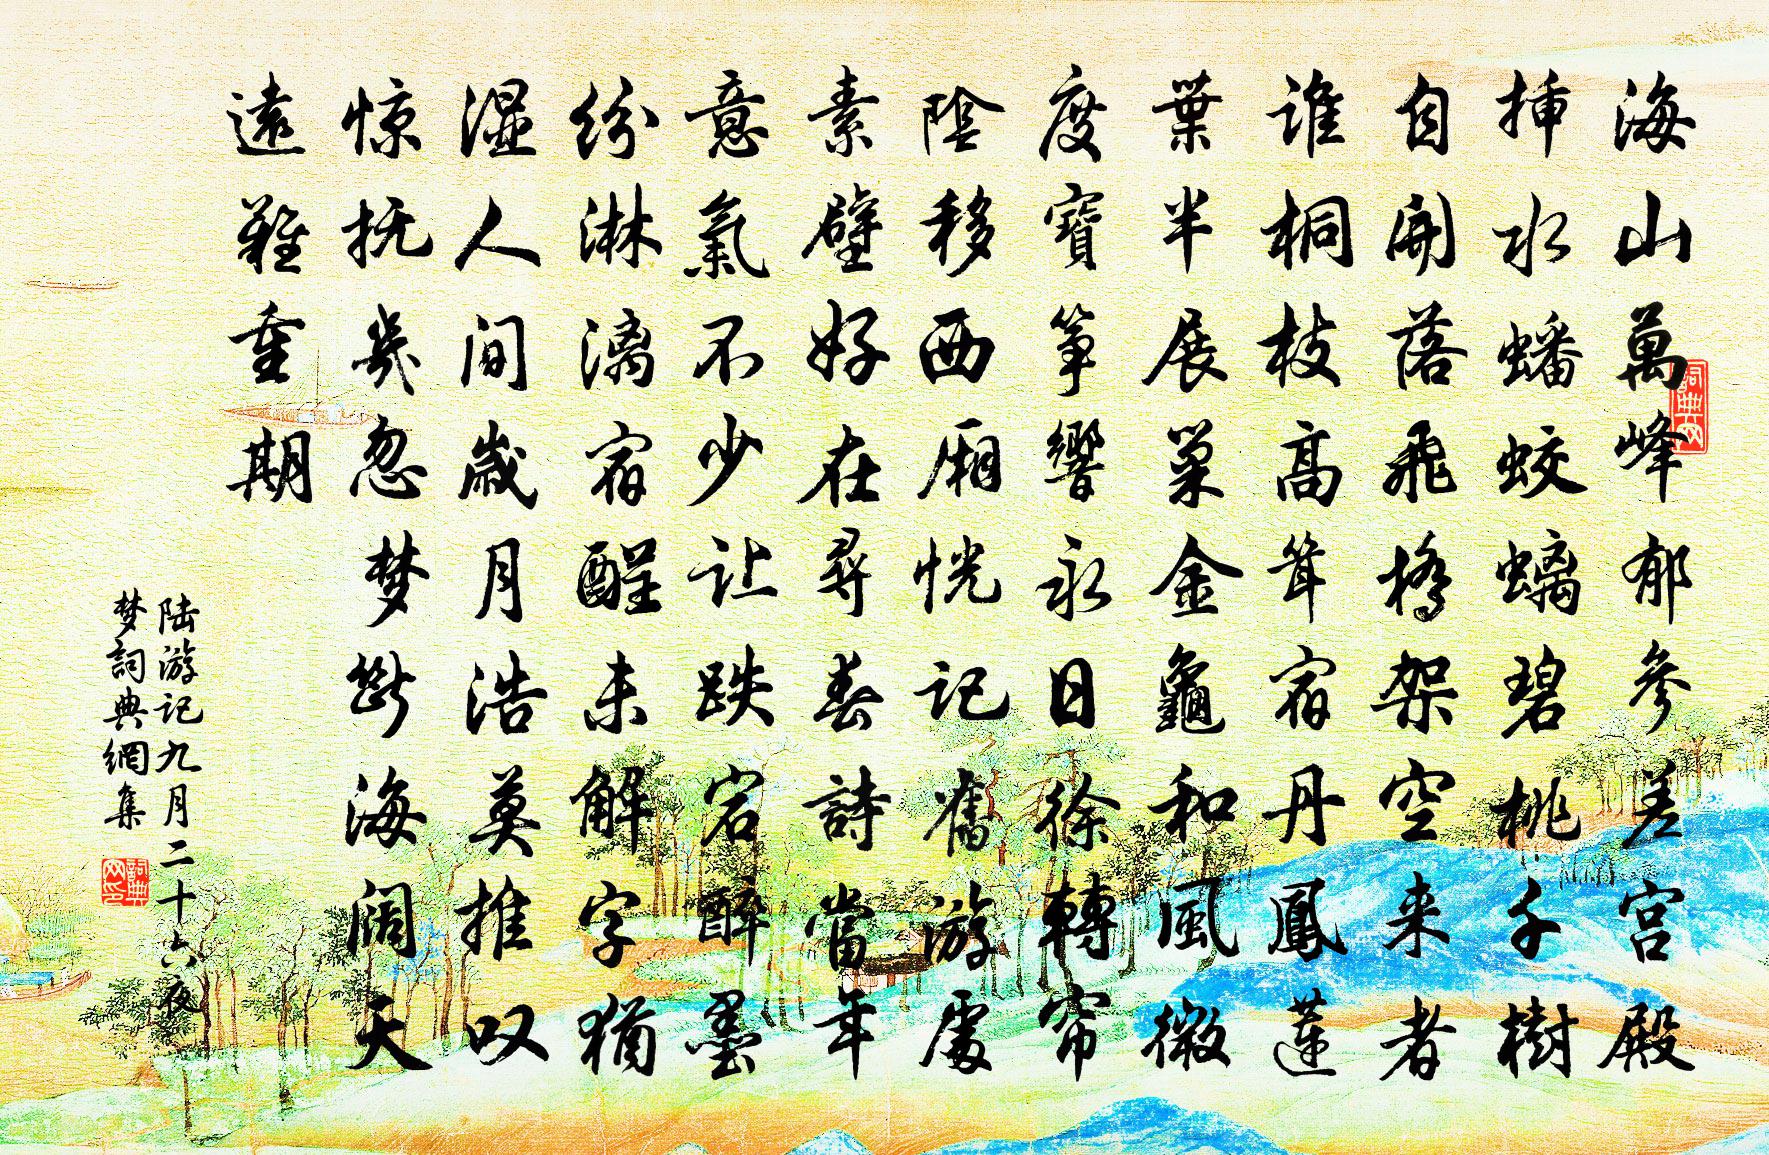 海山萬峰郁參差宫殿
挿水蟠蛟螭碧桃千樹
自開落飛橋架空来者
谁桐枝高耸宿丹鳳蓮
葉半展巢金龜和風微
度寶筝響永日徐轉帘
陰移西厢恍记舊游處
素壁好在尋春詩當年
意氣不少让跌宕醉墨
纷淋漓宿醒未解字猶
湿人间歲月浩莫推叹
惊抚幾忽梦斷海阔天
遠難重期
陆游记九月二十六夜
梦詞典網集
詞典网
詞典网印